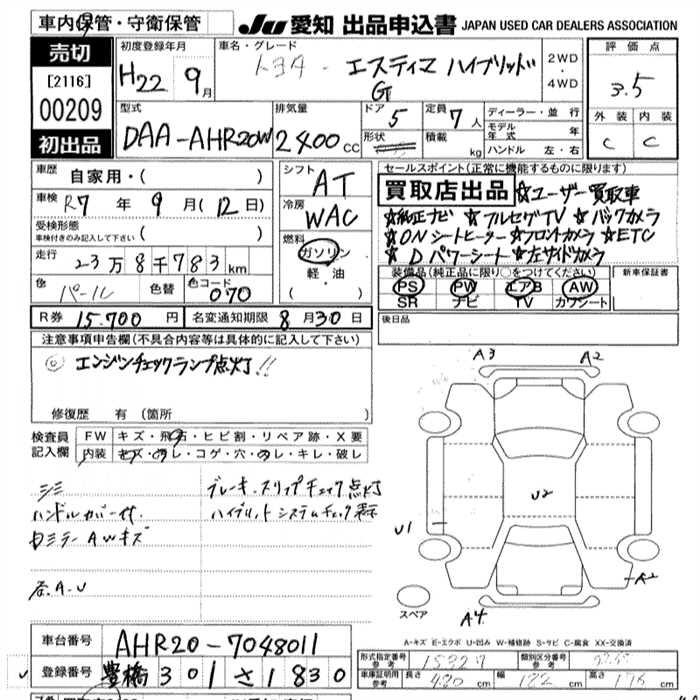 車内保管・守衛保管
JU 愛知 出品申込書 JAPAN USED CAR DEALERS ASSOCIATION
売切
[2116]
00209
初出品
初度登録年月
H22 9月
車名・グレード
トヨタ - エスティマ ハイブリッド
G
2WD
・
4WD
評価点
3.5
外装 内装
C C
型式
DAA-AHR20W
排気量
2400cc
ドア 5
形状
定員 7人
積載 kg
ディーラー・並行
モデル年式 年
ハンドル 左・右
車歴 自家用・( )
車検 R7年 9月(12日)
受検形態
車検付きのみ記入して下さい ( )
走行 23万8千783km
色 パール 色替 色コード 070
シフト AT
冷房 WAC
燃料
ガソリン
軽・油
( )
セールスポイント(正常に機能するものに限ります)
買取店出品 ☆ユーザー買取車
☆純正ナビ ☆フルセグTV ☆バックカメラ
☆ONシートヒーター ☆フロントカメラ ☆ETC
☆Dパワーシート ☆左サイドカメラ
装備品(純正品に限り○をつけてください)
PS PW エアB AW
SR ナビ TV カワシート
新車保証書
R券 15.700円 名変通知期限 8月30日
後日品
注意事項申告欄(不具合内容等は具体的に記入して下さい)
◎エンジンチェックランプ点灯!!
修復歴 有 (箇所 )
検査員記入欄
FW キズ・飛石・ヒビ割・リペア跡・X要
内装 キズ・ヨゴレ・コゲ・穴・カギレ・キレ・破レ
シミ
ハンドルカバー付.
ブレーキ.スリップチェック点灯
ハイブリットシステムチェック表示
A3 A2
U2
U1
A2
A4
スペア
A-キズ E-エクボ U-凹み W-補修跡 S-サビ C-腐食 XX-交換済
車台番号 AHR20-7048011
登録番号 豊橋 301 さ 1830
形式指定番号 参考
類別区分番号 参考
車庫証明用 参考 長さ 480cm 幅 182cm 高さ 176cm